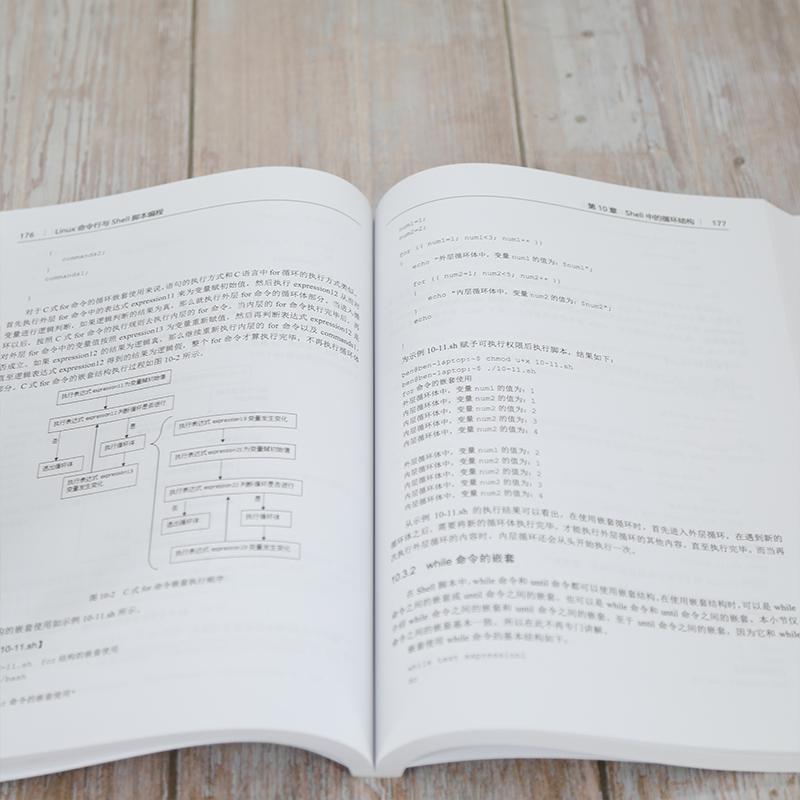 176 Linux 命令行与 Shell 脚本编程
{
command2;
}
command1;
}
对于 C 式 for 命令的循环嵌套使用来说，语句的执行方式和 C 语言中 for 循环的执行方式类似。
首先执行外层 for 命令中的表达式 expression11 来为变量赋初始值，然后执行 expression12 从而对
变量进行逻辑判断，如果逻辑判断的结果为真，那么就执行外层 for 命令的循环体部分。当进入循
环以后，按照 C 式 for 命令的执行规则去执行内层的 for 命令。当内层的 for 命令执行完毕后，再
对外层 for 命令中的变量值按照 expression13 为变量重新赋值，然后再判断表达式 expression12 是
否成立。如果 expression12 的结果为逻辑真，那么继续重新执行内层的 for 命令以及 command1，
直至逻辑表达式 expression12 得到的结果为逻辑假，整个 for 命令才算执行完毕，不再执行循环体
部分。C 式 for 命令的嵌套结构执行过程如图 10-2 所示。
执行表达式 expression11 为变量赋初始值
执行表达式 expression12 判断循环是否进行
否
是
退出循环体
执行循环体
执行表达式 expression13
变量发生变化
执行表达式 expression13 变量发生变化
执行表达式 expression21 为变量赋初始值
执行表达式 expression22 判断循环是否进行
否
是
退出循环体
执行循环体
执行表达式 expression23 变量发生变化
图 10-2 C 式 for 命令嵌套执行顺序
的嵌套使用如示例 10-11.sh 所示。
10-11.sh】
-11.sh for 结构的嵌套使用
/bash
命令的嵌套使用"
第 10 章 Shell 中的循环结构 177
num1=1;
num2=2;
for (( num1=1; num1<3; num1++ ))
{
echo "外层循环体中，变量 num1 的值为：$num1";
for (( num2=1; num2<5; num2++ ))
{
echo "内层循环体中，变量 num2 的值为：$num2";
}
echo
}
为示例 10-11.sh 赋予可执行权限后执行脚本，结果如下：
ben@ben-laptop:~$ chmod u+x 10-11.sh
ben@ben-laptop:~$ ./10-11.sh
for 命令的嵌套使用
外层循环体中，变量 num1 的值为：1
内层循环体中，变量 num2 的值为：1
内层循环体中，变量 num2 的值为：2
内层循环体中，变量 num2 的值为：3
内层循环体中，变量 num2 的值为：4
外层循环体中，变量 num1 的值为：2
内层循环体中，变量 num2 的值为：1
内层循环体中，变量 num2 的值为：2
内层循环体中，变量 num2 的值为：3
内层循环体中，变量 num2 的值为：4
从示例 10-11.sh 的执行结果可以看出，在使用嵌套循环时，首先进入外层循环，在遇到新的
循环体之后，需要将新的循环体执行完毕，才能执行外层循环的其他内容，直至执行完毕。而当再
次执行外层循环的内容时，内层循环还会从头开始执行一次。
10.3.2 while 命令的嵌套
在 Shell 脚本中，while 命令和 until 命令都可以使用嵌套结构，在使用嵌套结构时，可以是 while
命令之间的嵌套或 until 命令之间的嵌套，也可以是 while 命令和 until 命令之间的嵌套。本小节仅
介绍 while 命令之间的嵌套和 until 命令之间的嵌套，至于 until 命令之间的嵌套，因为它和 while
命令的嵌套基本一致，所以在此不再专门讲解。
嵌套使用 while 命令的基本结构如下。
while test expression1
do